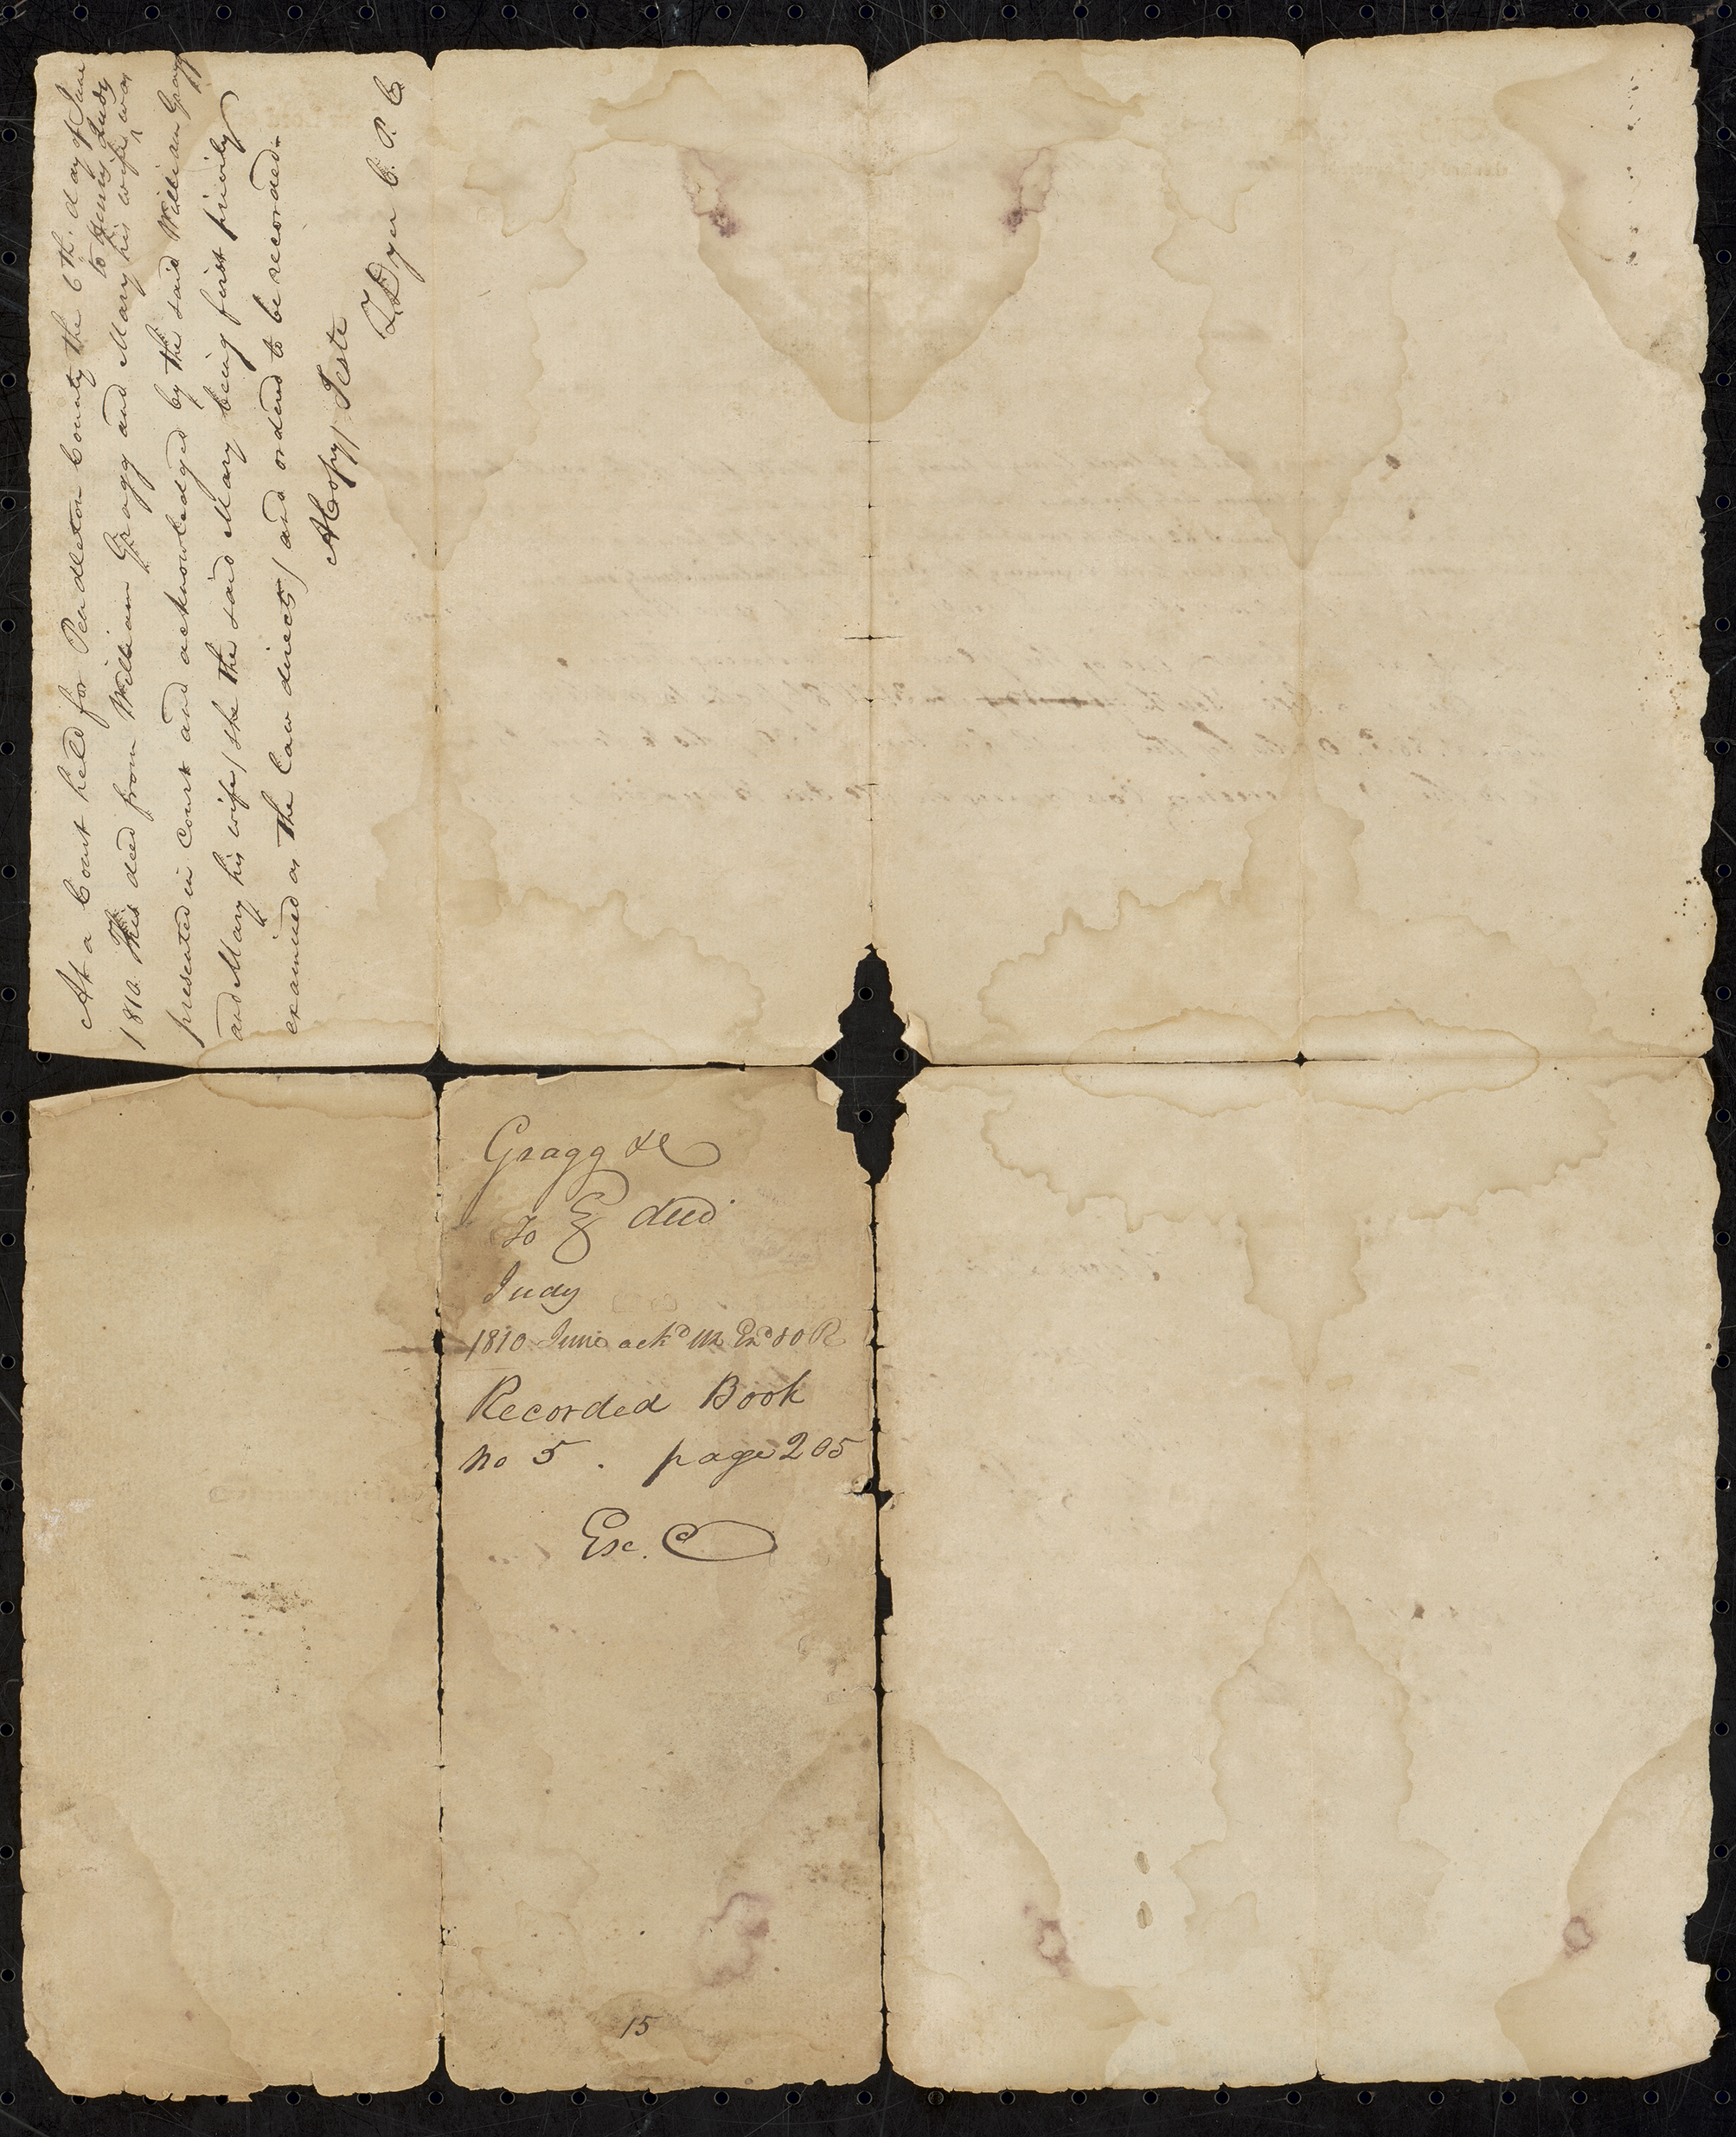 At a Court held for Pendleton County the 6th. day of June
to Henry Judy
1810. This deed from William Gragg and Mary his wife ^ was
presented in Court and acknowledged by the said William Gragg
and Mary his wife / she the said Mary being first privily
examined as the law directs / and ordered to be recorded.
A Copy / Teste
Z Dyer C. P. C.
Gragg &c
To deed
Judy
1810 June ackd R
Recorded Book
No 5 . page 205
Exc.
15